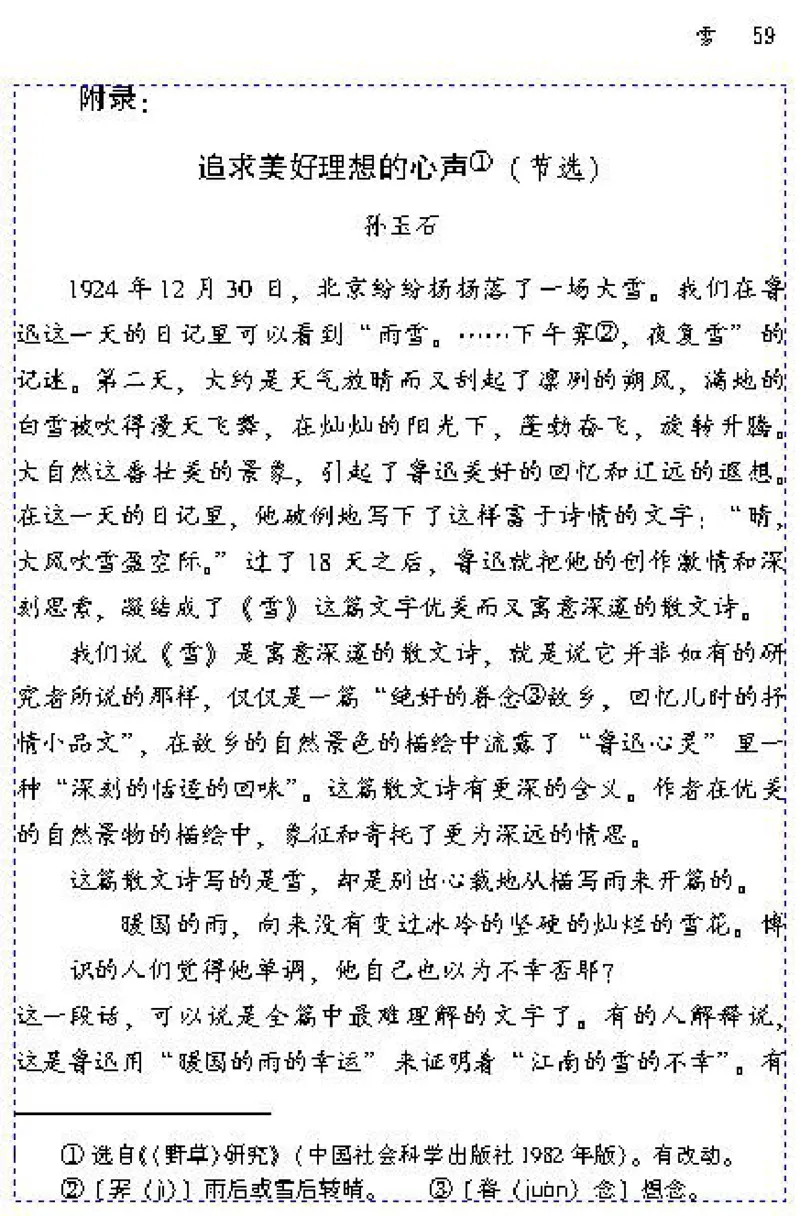 雪 59
附录：
追求美好理想的心声①（节选）
孙玉石
1924 年 12 月 30 日，北京纷纷扬扬落了一场大雪。我们在鲁
迅这一天的日记里可以看到“雨雪。……下午霁②，夜复雪”的
记述。第二天，大约是天气放晴而又刮起了凛冽的朔风，满地的
白雪被吹得漫天飞舞，在灿灿的阳光下，蓬勃奋飞，旋转升腾。
大自然这番壮美的景象，引起了鲁迅美好的回忆和辽远的遐想。
在这一天的日记里，他破例地写下了这样富于诗情的文字：“晴，
大风吹雪盈空际。”过了 18 天之后，鲁迅就把他的创作激情和深
刻思索，凝结成了《雪》这篇文字优美而又寓意深邃的散文诗。
我们说《雪》是寓意深邃的散文诗，就是说它并非如有的研
究者所说的那样，仅仅是一篇“绝好的眷念③故乡，回忆儿时的抒
情小品文”，在故乡的自然景色的描绘中流露了“鲁迅心灵”里一
种“深刻的恬适的回味”。这篇散文诗有更深的含义。作者在优美
的自然景物的描绘中，象征和寄托了更为深远的情思。
这篇散文诗写的是雪，却是别出心裁地从描写雨来开篇的。
暖国的雨，向来没有变过冰冷的坚硬的灿烂的雪花。博
识的人们觉得他单调，他自己也以为不幸否耶？
这一段话，可以说是全篇中最难理解的文字了。有的人解释说，
这是鲁迅用“暖国的雨的幸运”来证明着“江南的雪的不幸”。有
① 选自《〈野草〉研究》（中国社会科学出版社 1982 年版）。有改动。
② ［霁（jì）］雨后或雪后转晴。 ③［眷（juàn）念］想念。